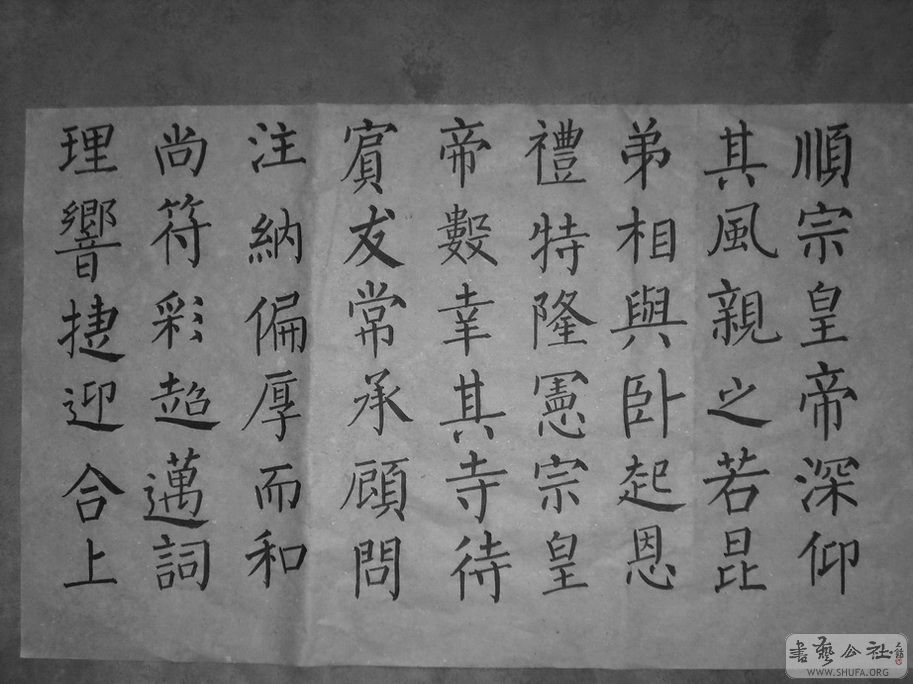 順宗皇帝深仰
其風親之若昆
弟相與卧起恩
禮特隆憲宗皇
帝數幸其寺待
賓友常承顧問
注納偏厚而和
尚符彩超邁詞
理響捷迎合上
書藝公社
WWW.SHUFA.ORG